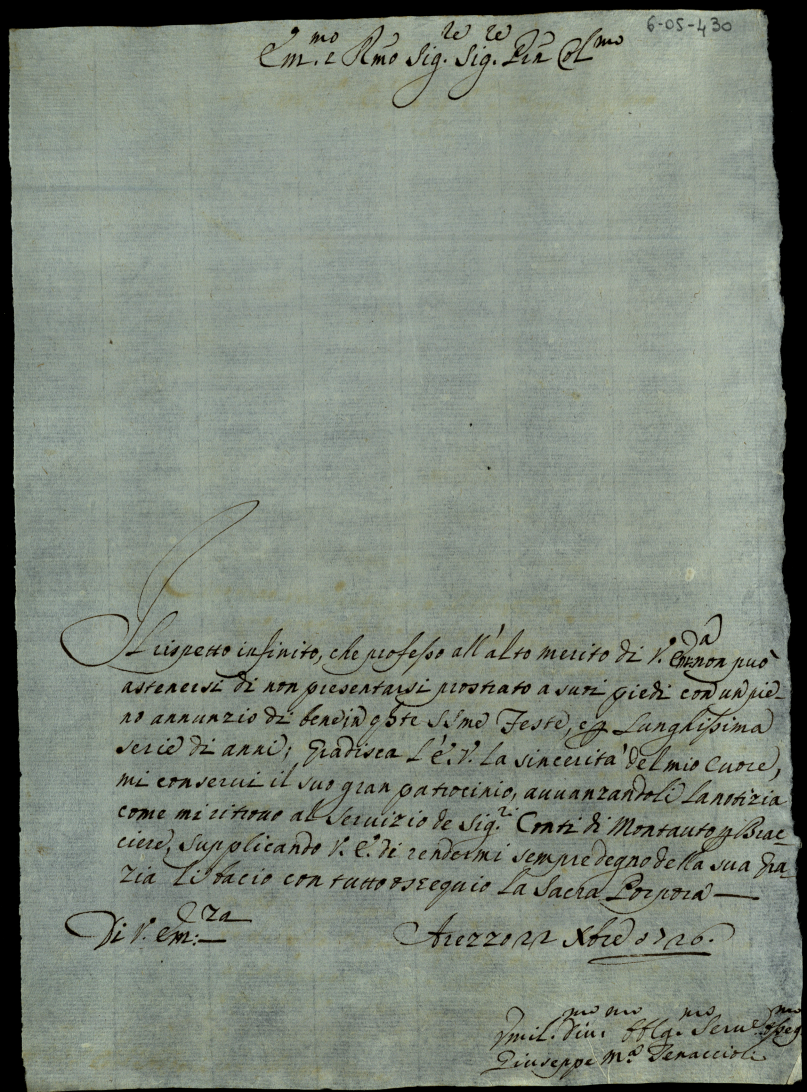 6-05-430
Em.mo e Rmo Sig.re Sig.re Prn Col.mo
Il rispetto infinito, che professo all'alto merito di V. Em.za non può
astenersi di non presentarsi prostrato a suoi piedi con un pie-
no annunzio di bene in qste SSme Feste, e p Lunghissima
serie di anni; gradisca L'E. V. la sincerità del mio Cuore,
mi conservi il suo gran patrocinio, avvanzandole la notizia
come mi ritrovo al Servizio de Sig.ri Conti di Montauto p Brac-
ciere, supplicando V. E. di rendermi sempre degno della sua gra-
zia li bacio con tutto ossequio la Sacra Porpora
Di V. Em.za
Arezzo 22 Xbre 1726.
Vmil.mo Div.mo Obblg.mo Serue Osseq.mo
Giuseppe M.a Tenaccioli